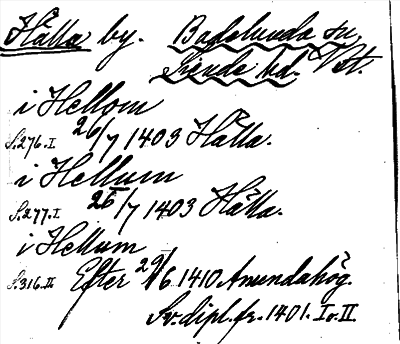 Hälla by. Badelunda sn,
Siende hd. Vstm.
i Hellom
S.276.I. 26/7 1403 Hälla.
i Hellum
S.277.I. 26/7 1403 Hälla.
i Hellum
S.316.II. Efter 29/6 1410 Amundahög.
Sv. dipl. fr. 1401. I o. II.